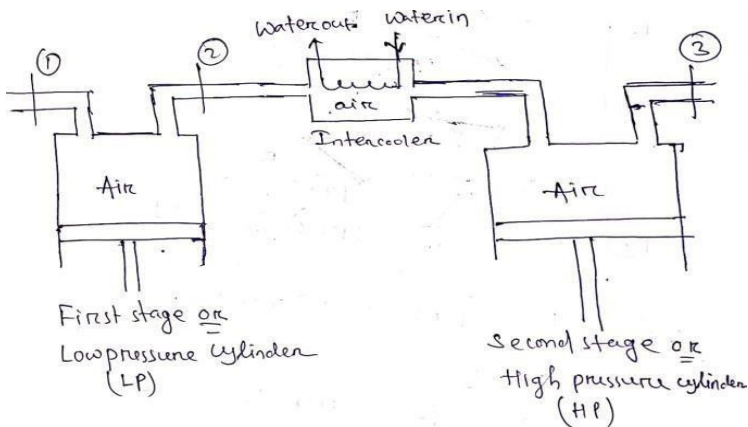 Water out
Water in
①
②
③
air
Intercooler
Air
Air
First stage or
Low pressure cylinder
(LP)
Second stage or
High pressure cylinder
(HP)